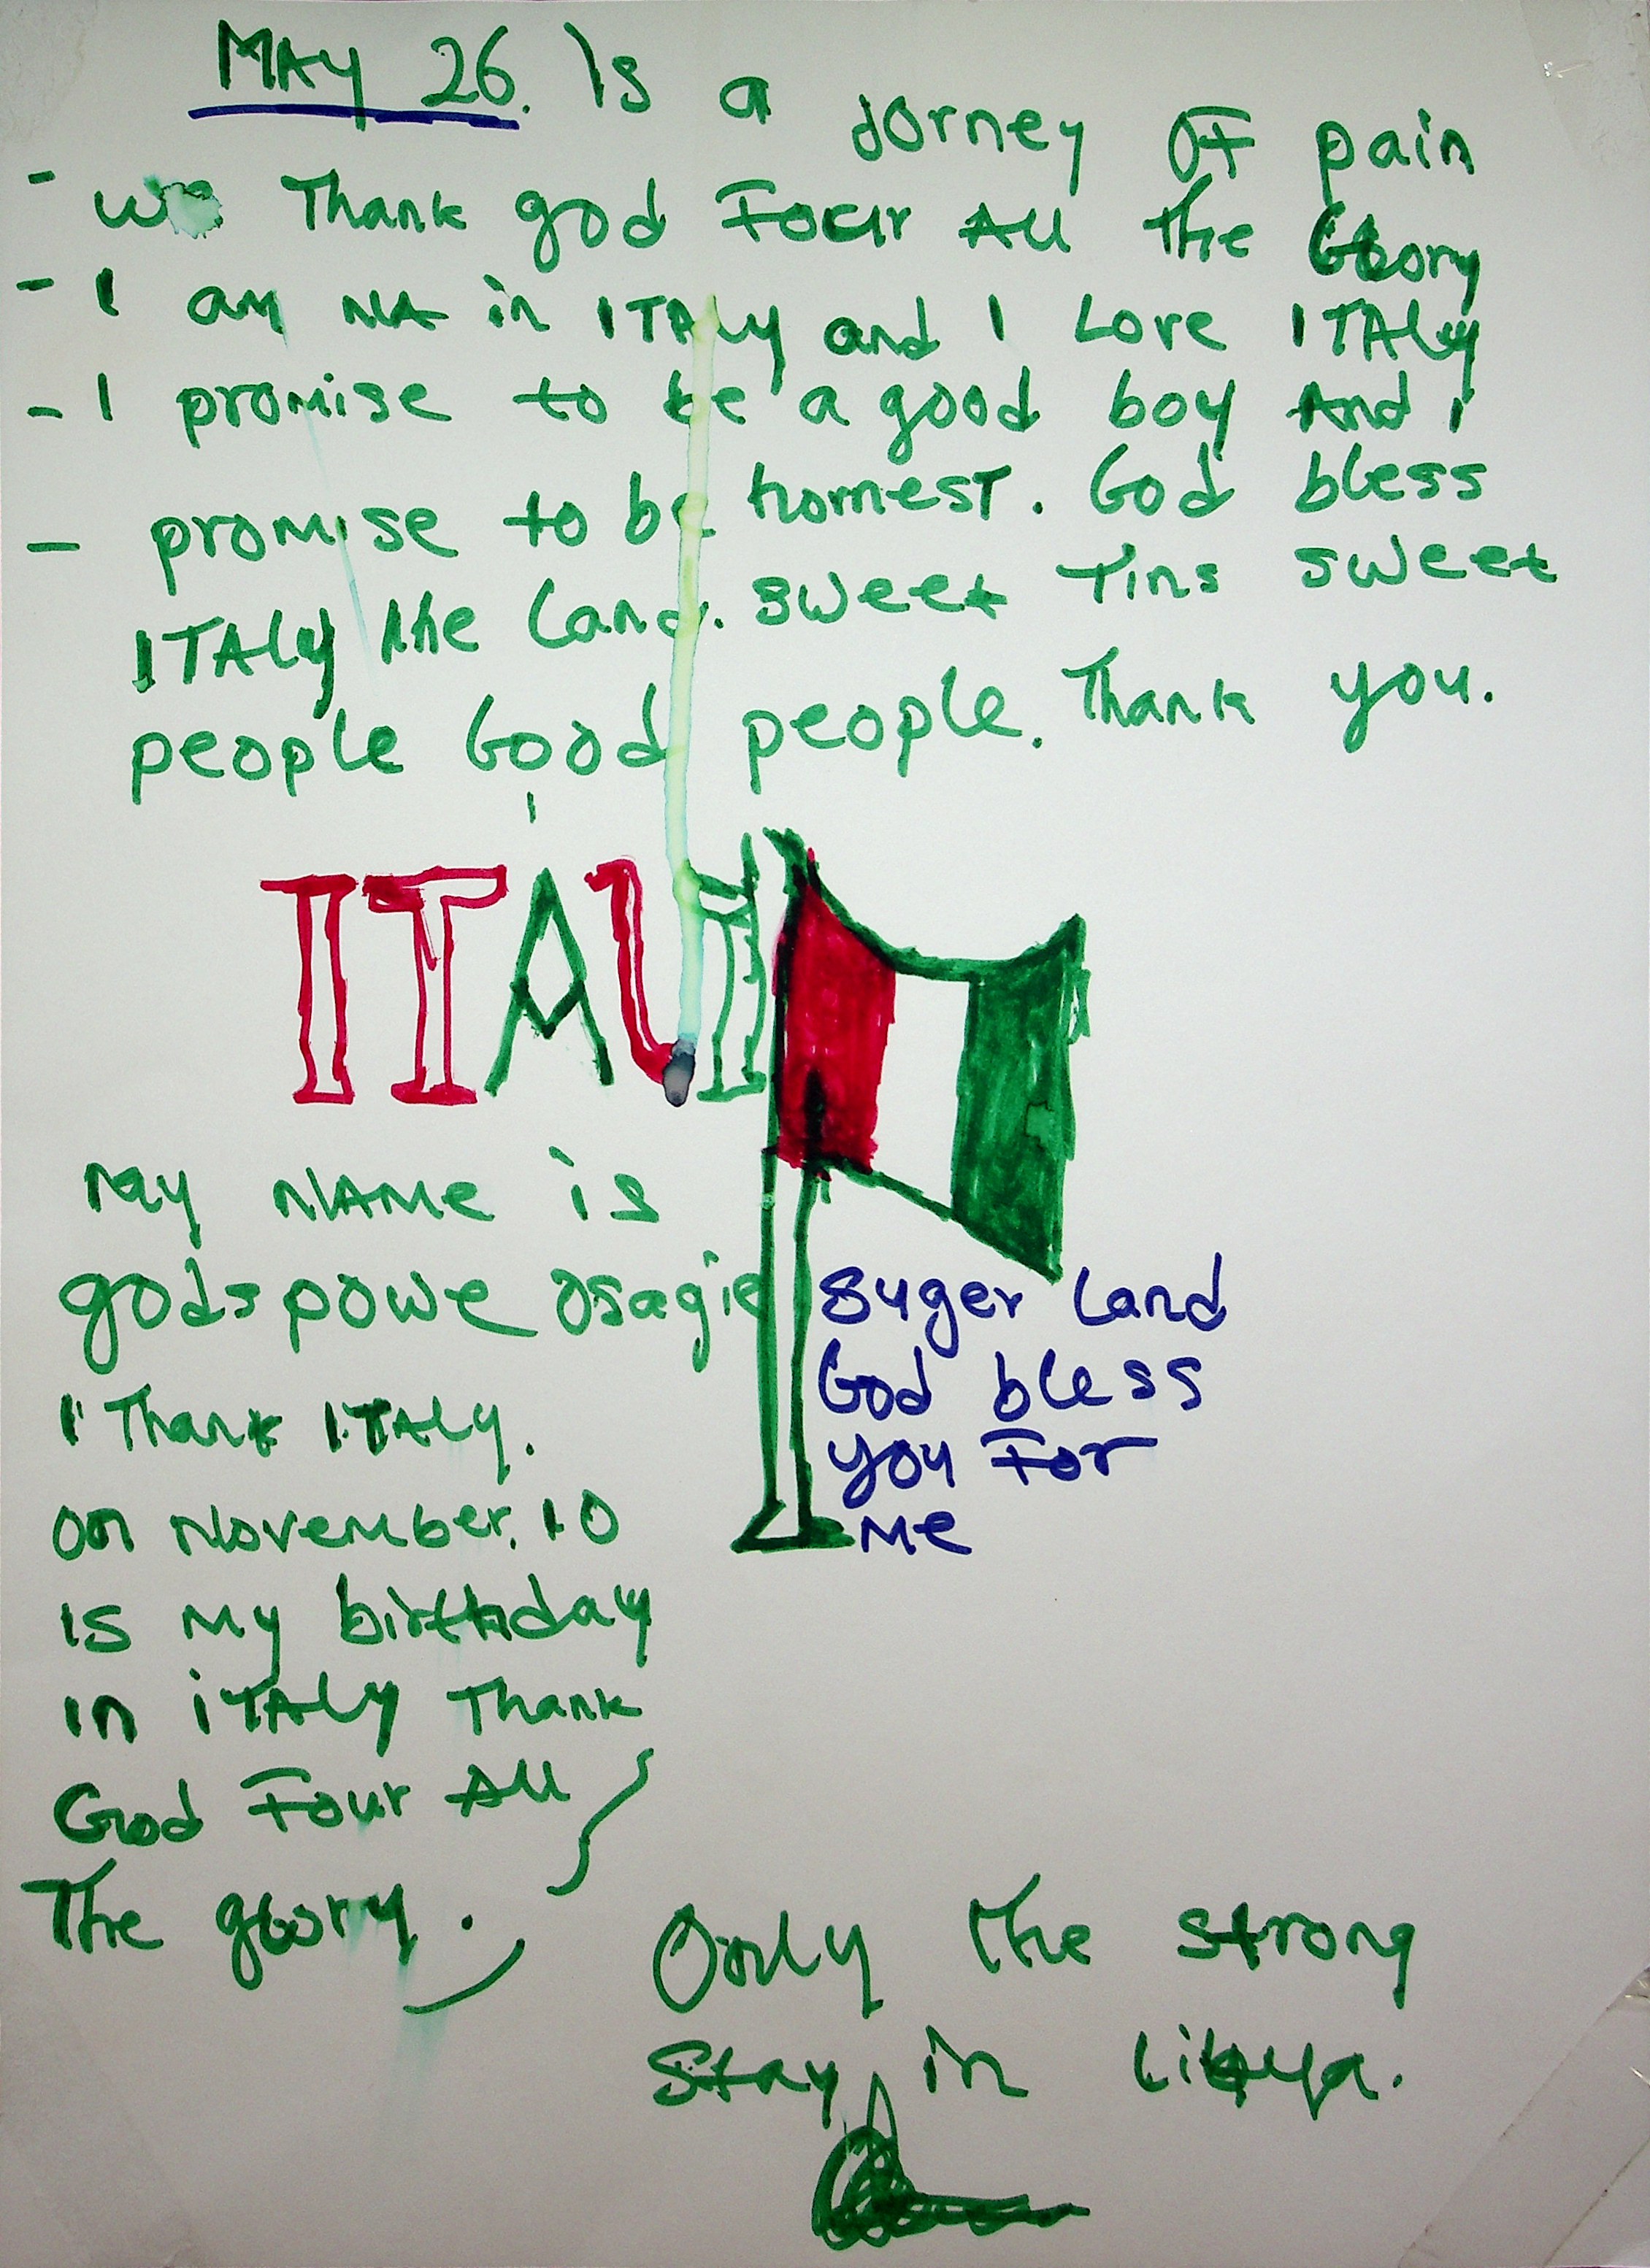 MAY 26. is a Jorney OF pain
- we Thank god Four All The Glory
- I am NA in ITALy and I Love ITALy
- I promise to be a good boy And I
- promise to be hornest. God bless
ITALy the Land. sweet Tins sweet
people Good people. Thank you.
ITALY
My NAMe is
godspowe osagie
I Thank ITALy.
on November. 10
is My birthday
in iTALy Thank
God Four All
The glory.
suger Land
God bless
you For
Me
Only The strong
Stay in Libya.